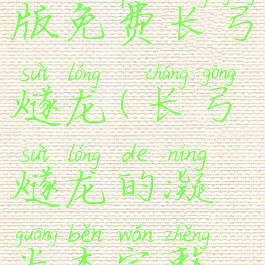 版免费长弓
suì lóng cháng gōng
燧龙(长弓
suì lóng de níng
燧龙的凝
guāng běn wán zhěng
光本完整